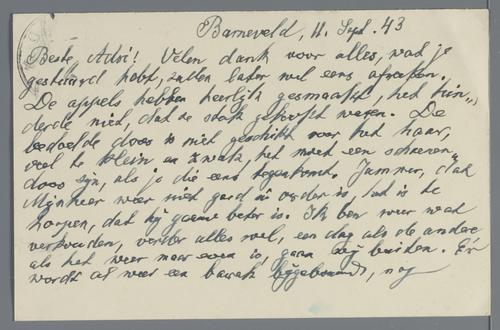 Barneveld, 11. Sept. 43
Beste Adri! Velen dank voor alles, wat je
gestuurd hebt, zullen later wel eens afrekenen.
De appels hebben heerlijk gesmaakt, het hin-
derde niet, dat ze sterk gekneusd waren. De
bedoelde doos is niet geschikt voor het haar,
veel te klein en zwak, het moet een schoenen-
doos zijn, als je die eens tegenkomt. Jammer, dat
Mijnheer weer niet goed in orde is, is te
hopen, dat hij gauw beter is. Ik ben weer wat
verkouden, verder alles wel, een dag als de andere
als het weer maar even is, gaan wij buiten. Er
wordt al weer een barak bijgebouwd, nog